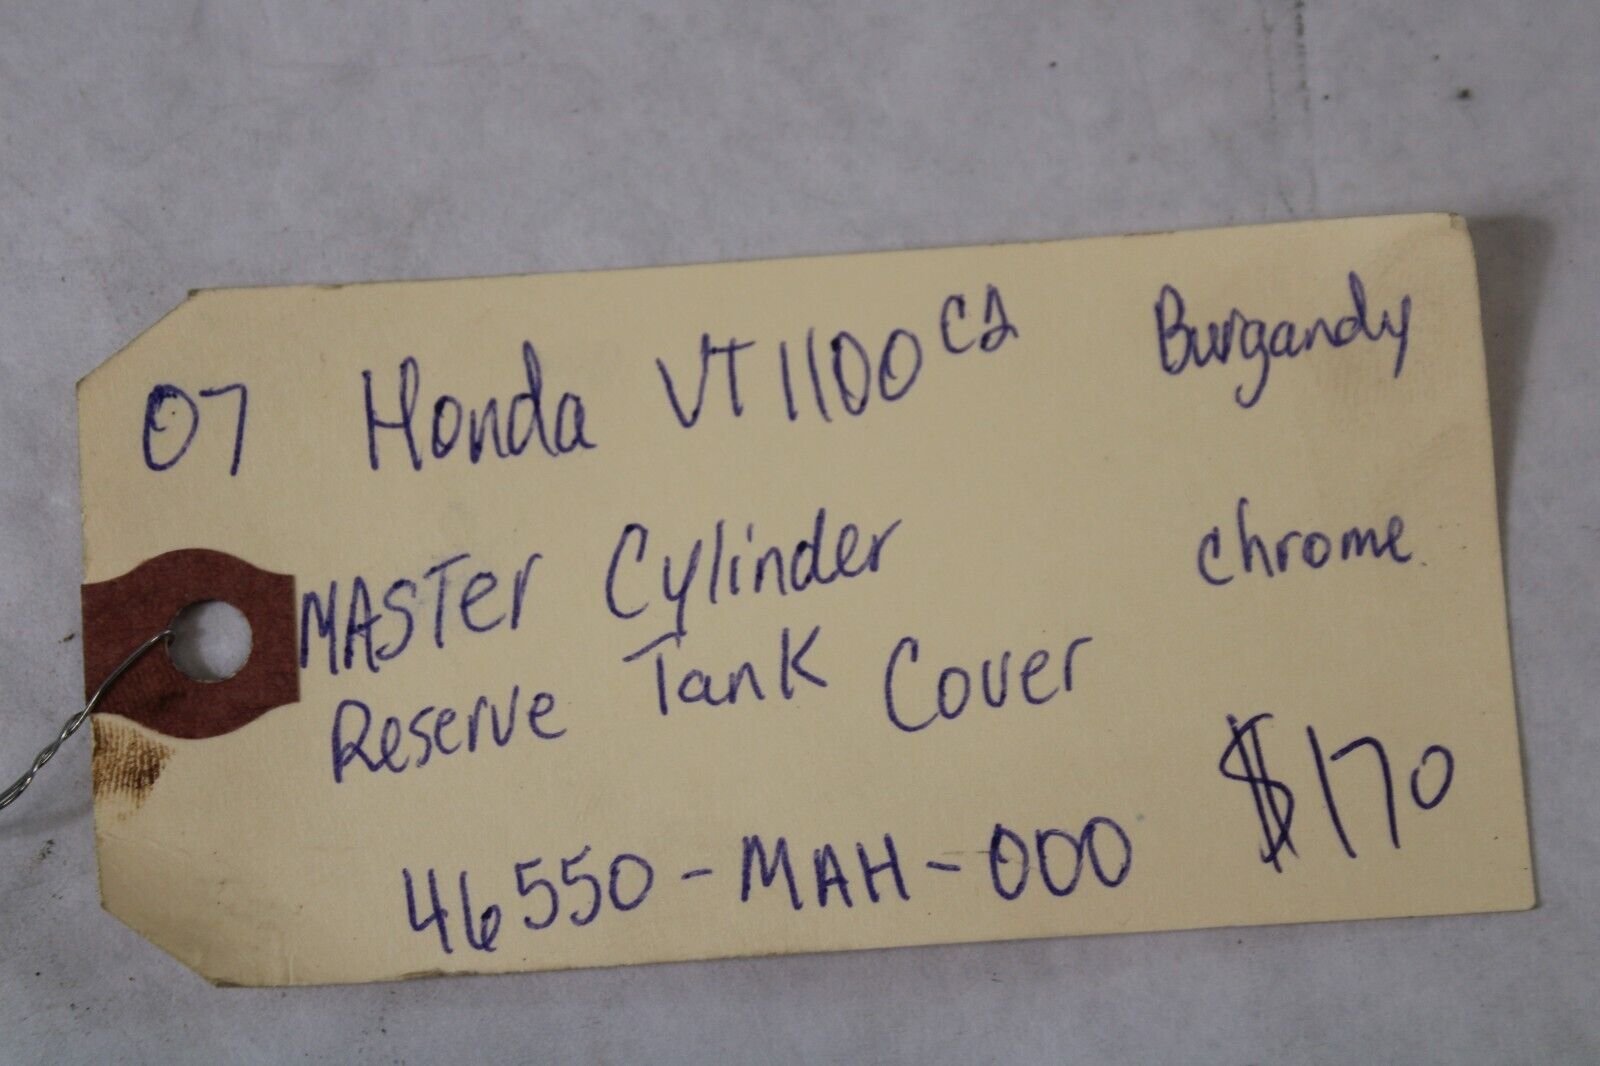 07 Honda VT1100 C2 Burgandy
MASTer Cylinder chrome
Reserve Tank Cover
46550-MAH-000 $170